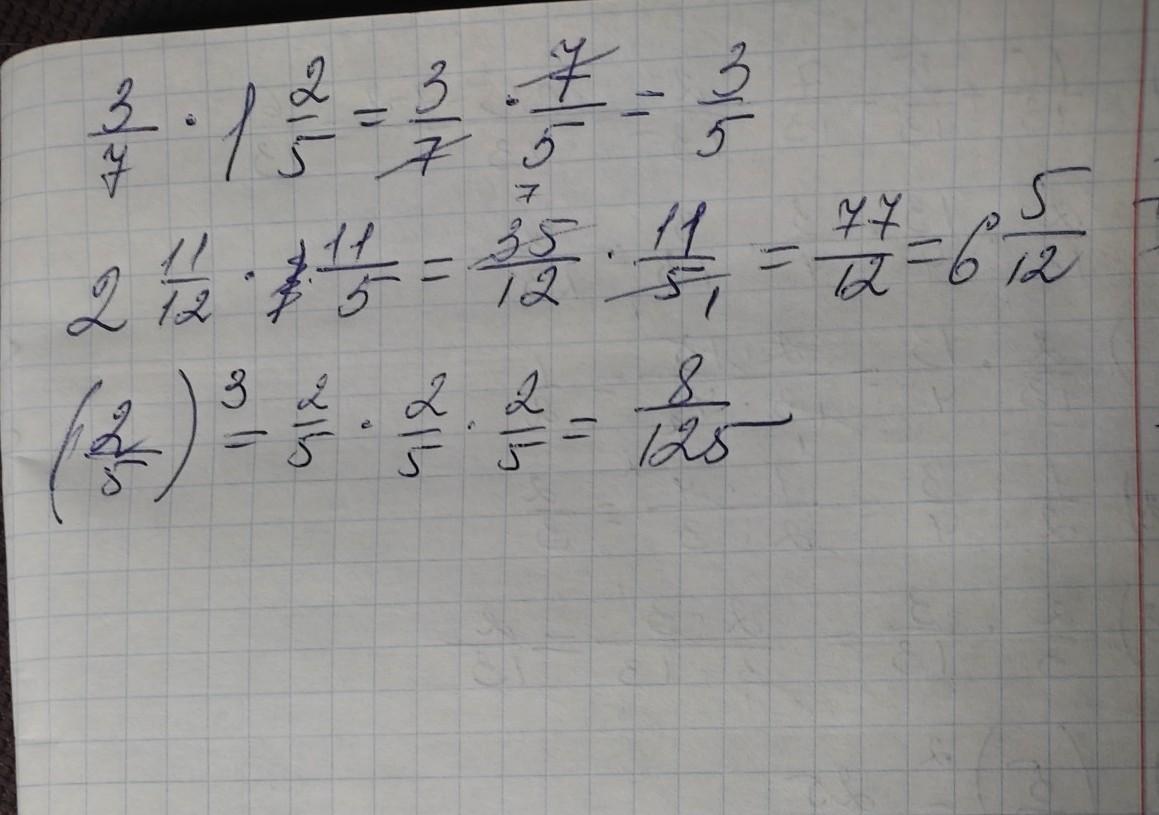 3/7 · 1 2/5 = 3/7 · 7/5 = 3/5
2 11/12 · 11/5 = 35/12 · 11/5 = 77/12 = 6 5/12
(2/5)³ = 2/5 · 2/5 · 2/5 = 8/125